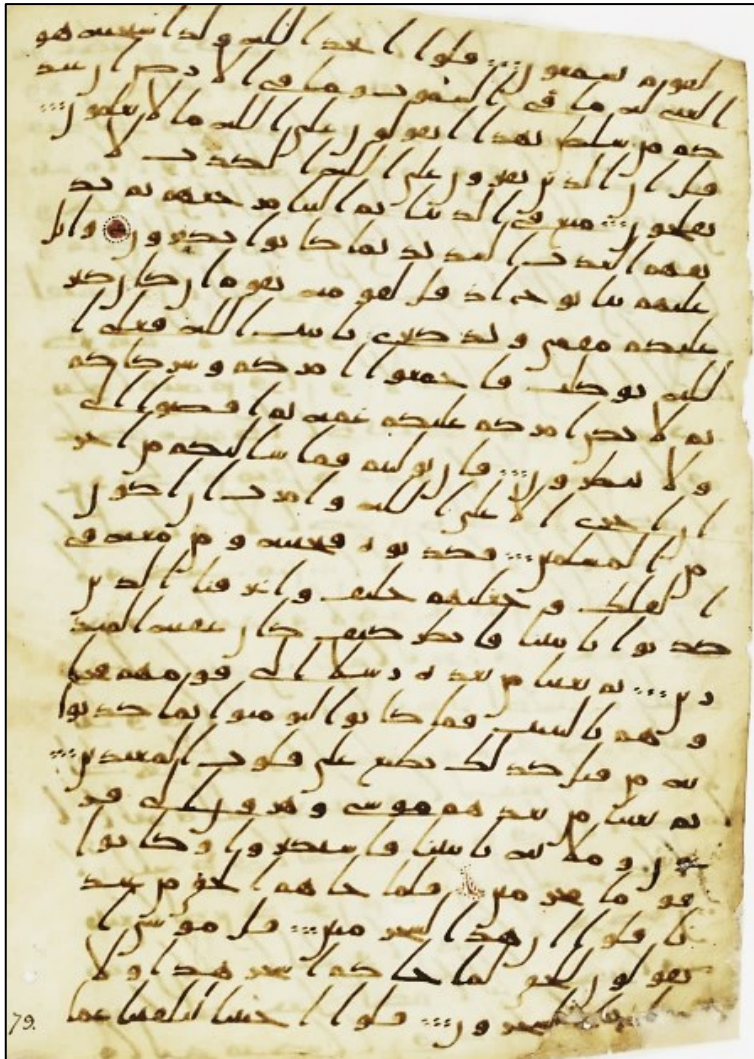 لقوم يسمعون قلوا اتخذ الله ولدا سبحنه هو
الغني له ما في السموت وما في الارض ان عند
كم من سلطن بهذا اتقولون على الله ما لا تعلمون
قل ان الذين يفترون على الله الكذب لا
يفلحون متع في الدنيا ثم الينا مرجعهم ثم نذ
يقهم العذب الشديد بما كانوا يكفرون واتل
عليهم نبا نوح اذ قل لقومه يقوم ان كان كبر
عليكم مقمي وتذكيري بايت الله فعلى ا
لله توكلت فاجمعوا امركم وشركاكم
ثم لا يكن امركم عليكم غمة ثم اقضوا الي
ولا تنظرون فان توليتم فما سالتكم من اجر
ان اجري الا على الله وامرت ان اكون
من المسلمين فكذبوه فنجينه ومن معه في
الفلك وجعلنهم خلئف واغرقنا الذين
كذبوا بايتنا فانظر كيف كان عقبة المنذ
رين ثم بعثنا من بعده رسلا الى قومهم فجا
وهم بالبينت فما كانوا ليومنوا بما كذبوا
به من قبل كذلك نطبع على قلوب المعتدين
ثم بعثنا من بعدهم موسى وهرون الى فر
عون وملائه بايتنا فاستكبروا وكانوا
قوما مجرمين فلما جاهم الحق من عند
نا قلوا ان هذا لسحر مبين قل موسى ا
تقولون للحق لما جاكم اسحر هذا ولا
السحرون قلوا اجئتنا لتلفتنا عما
79.